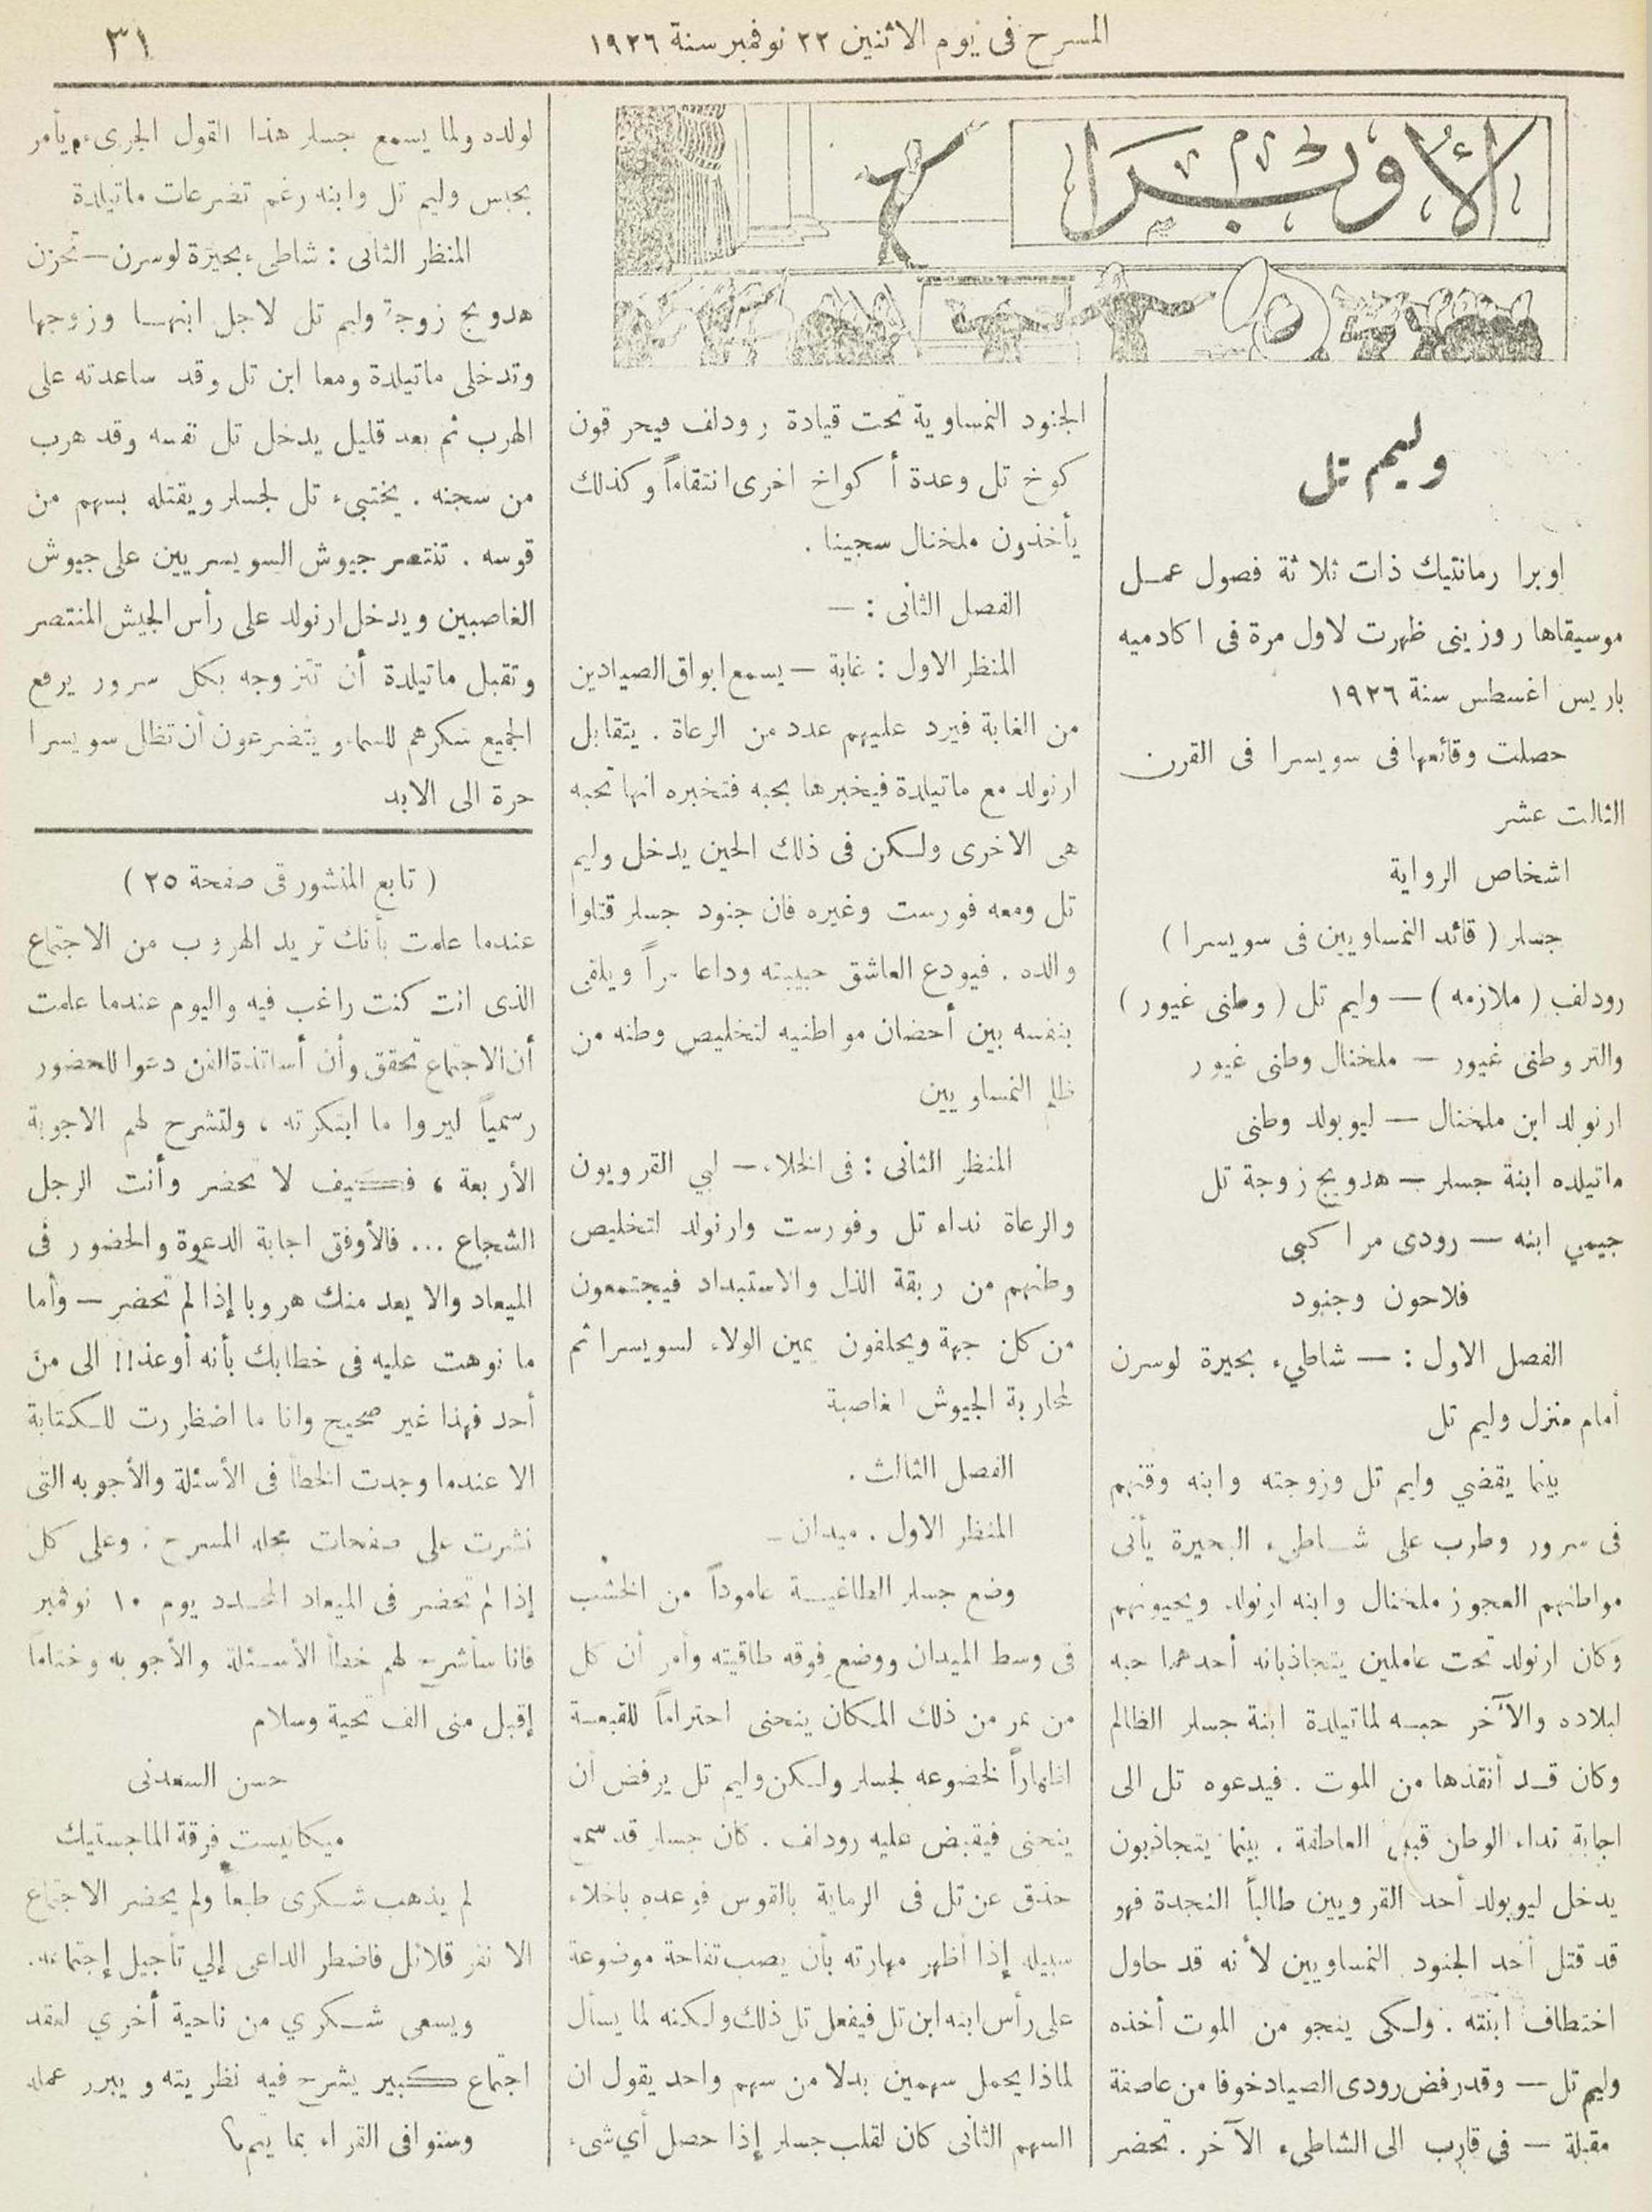 المسرح فى يوم الاثنين ٢٢ نوفمبر سنة ١٩٢٦
٣١
الأوبرا
وليم تل
اوبرا رمانتيك ذات ثلاثة فصول عمل
موسيقاها روزينى ظهرت لاول مرة فى اكادميه
باريس اغسطس سنة ١٩٢٦
حصلت وقائعها فى سويسرا فى القرن
الثالت عشر
اشخاص الرواية
جسلر ( قائد النمساويين فى سويسرا )
رودلف ( ملازمه ) — وليم تل ( وطنى غيور )
والتر وطنى غيور — ملخنال وطنى غيور
ارنولد ابن ملخنال — ليوبولد وطنى
ماتيلده ابنة جسلر — هدويج زوجة تل
جيمي ابنه — رودى مراكبى
فلاحون وجنود
الفصل الاول : — شاطيء بحيرة لوسرن
أمام منزل وليم تل
بينما يقضي وليم تل وزوجته وابنه وقتهم
فى سرور وطرب على شاطىء البحيرة يأتى
مواطنهم العجوز ملخنال وابنه ارنولد ويحيونهم
وكان ارنولد تحت عاملين يتجاذبانه أحدهما حبه
لبلاده والآخر حبه لماتيلدة ابنة جسلر الظالم
وكان قد أنقذها من الموت . فيدعوه تل الى
اجابة نداء الوطن قبل العاطفة . بينما يتجاذبون
يدخل ليوبولد أحد القرويين طالباً النجدة فهو
قد قتل أحد الجنود النمساويين لأنه قد حاول
اختطاف ابنته . ولكى ينجو من الموت أخذه
وليم تل — وقد رفض رودى الصياد خوفا من عاصفة
مقبلة — فى قارب الى الشاطىء الآخر . تحضر
الجنود النمساوية تحت قيادة رودلف فيحرقون
كوخ تل وعدة أكواخ اخرى انتقاماً وكذلك
يأخذون ملخنال سجينا .
الفصل الثانى : —
المنظر الاول : غابة — يسمع ابواق الصيادين
من الغابة فيرد عليهم عدد من الرعاة . يتقابل
ارنولد مع ماتيلدة فيخبرها بحبه فتخبره انها تحبه
هى الاخرى ولكن فى ذلك الحين يدخل وليم
تل ومعه فورست وغيره فان جنود جسلر قتلوا
والده . فيودع العاشق حبيبته وداعا مراً ويلقى
بنفسه بين أحضان مواطنيه لتخليص وطنه من
ظلم النمساويين
المنظر الثانى : فى الخلاء — لبي القرويون
والرعاة نداء تل وفورست وارنولد لتخليص
وطنهم من ربقة الذل والاستبداد فيجتمعون
من كل جهة ويحلفون يمين الولاء لسويسرا ثم
لمحاربة الجيوش الغاصبة
الفصل الثالث .
المنظر الاول . ميدان —
وضع جسلر الطاغية عاموداً من الخشب
فى وسط الميدان ووضع فوقه طاقيته وأمر أن كل
من يمر من ذلك المكان ينحنى احتراماً للقبعة
اظهاراً لخضوعه لجسلر ولكن وليم تل يرفض أن
ينحنى فيقبض عليه رودلف . كان جسلر قد سمع
حذق عن تل فى الرماية بالقوس فوعده باخلاء
سبيله إذا أظهر مهارته بأن يصب تفاحة موضوعة
على رأس ابنه ابن تل فيفعل تل ذلك ولكنه لما يسأل
لماذا يحمل سهمين بدلا من سهم واحد يقول ان
السهم الثانى كان لقلب جسلر إذا حصل أي شىء
لولده ولما يسمع جسلر هذا القول الجرىء يأمر
بحبس وليم تل وابنه رغم تضرعات ماتيلدة
المنظر الثانى : شاطىء بحيرة لوسرن — تحزن
هدويج زوجة وليم تل لاجل ابنها وزوجها
وتدخلى ماتيلدة ومعا ابن تل وقد ساعدته على
الهرب ثم بعد قليل يدخل تل نفسه وقد هرب
من سجنه . يختبىء تل لجسلر ويقتله بسهم من
قوسه . تنتصر جيوش السويسريين على جيوش
الغاصبين ويدخل ارنولد على رأس الجيش المنتصر
وتقبل ماتيلدة أن تتزوجه بكل سرور يرفع
الجميع شكرهم للسماء ويتضرعون أن تظل سويسرا
حرة الى الابد
( تابع المنشور فى صفحة ٢٥ )
عندما علمت بأنك تريد الهروب من الاجتماع
الذى انت كنت راغب فيه واليوم عندما علمت
أن الاجتماع تحقق وأن أساتذة الفن دعوا للحضور
رسمياً ليروا ما ابتكرته ، ولتشرح لهم الاجوبة
الأربعة ، فكيف لا تحضر وأنت الرجل
الشجاع ... فالأوفق اجابة الدعوة والحضور فى
الميعاد والا يعد منك هروبا إذا لم تحضر — وأما
ما نوهت عليه فى خطابك بأنه أوعذ!! الى من
أحد فهذا غير صحيح وانا ما اضظررت للكتابة
الا عندما وجدت الخطأ فى الأسئلة والأجوبه التى
نشرت على صفحات مجلة المسرح . وعلى كل
إذا لم تحضر فى الميعاد المحدد يوم ١٠ نوفمبر
فانا سأشرح لهم خطأ الأسئلة والأجوبه وختاماً
إقبل منى الف تحية وسلام
حسن السعدنى
ميكانيست فرقة الماجستيك
لم يذهب شكرى طبعاً ولم يحضر الاجتماع
الا نفر قلائل فاضطر الداعى إلي تأجيل إجتماعه.
ويسعى شكري من ناحية أخري لعقد
اجتماع كبير يشرح فيه نظريته ويبرر عمله
وسنوافى القراء بما يتم ؟